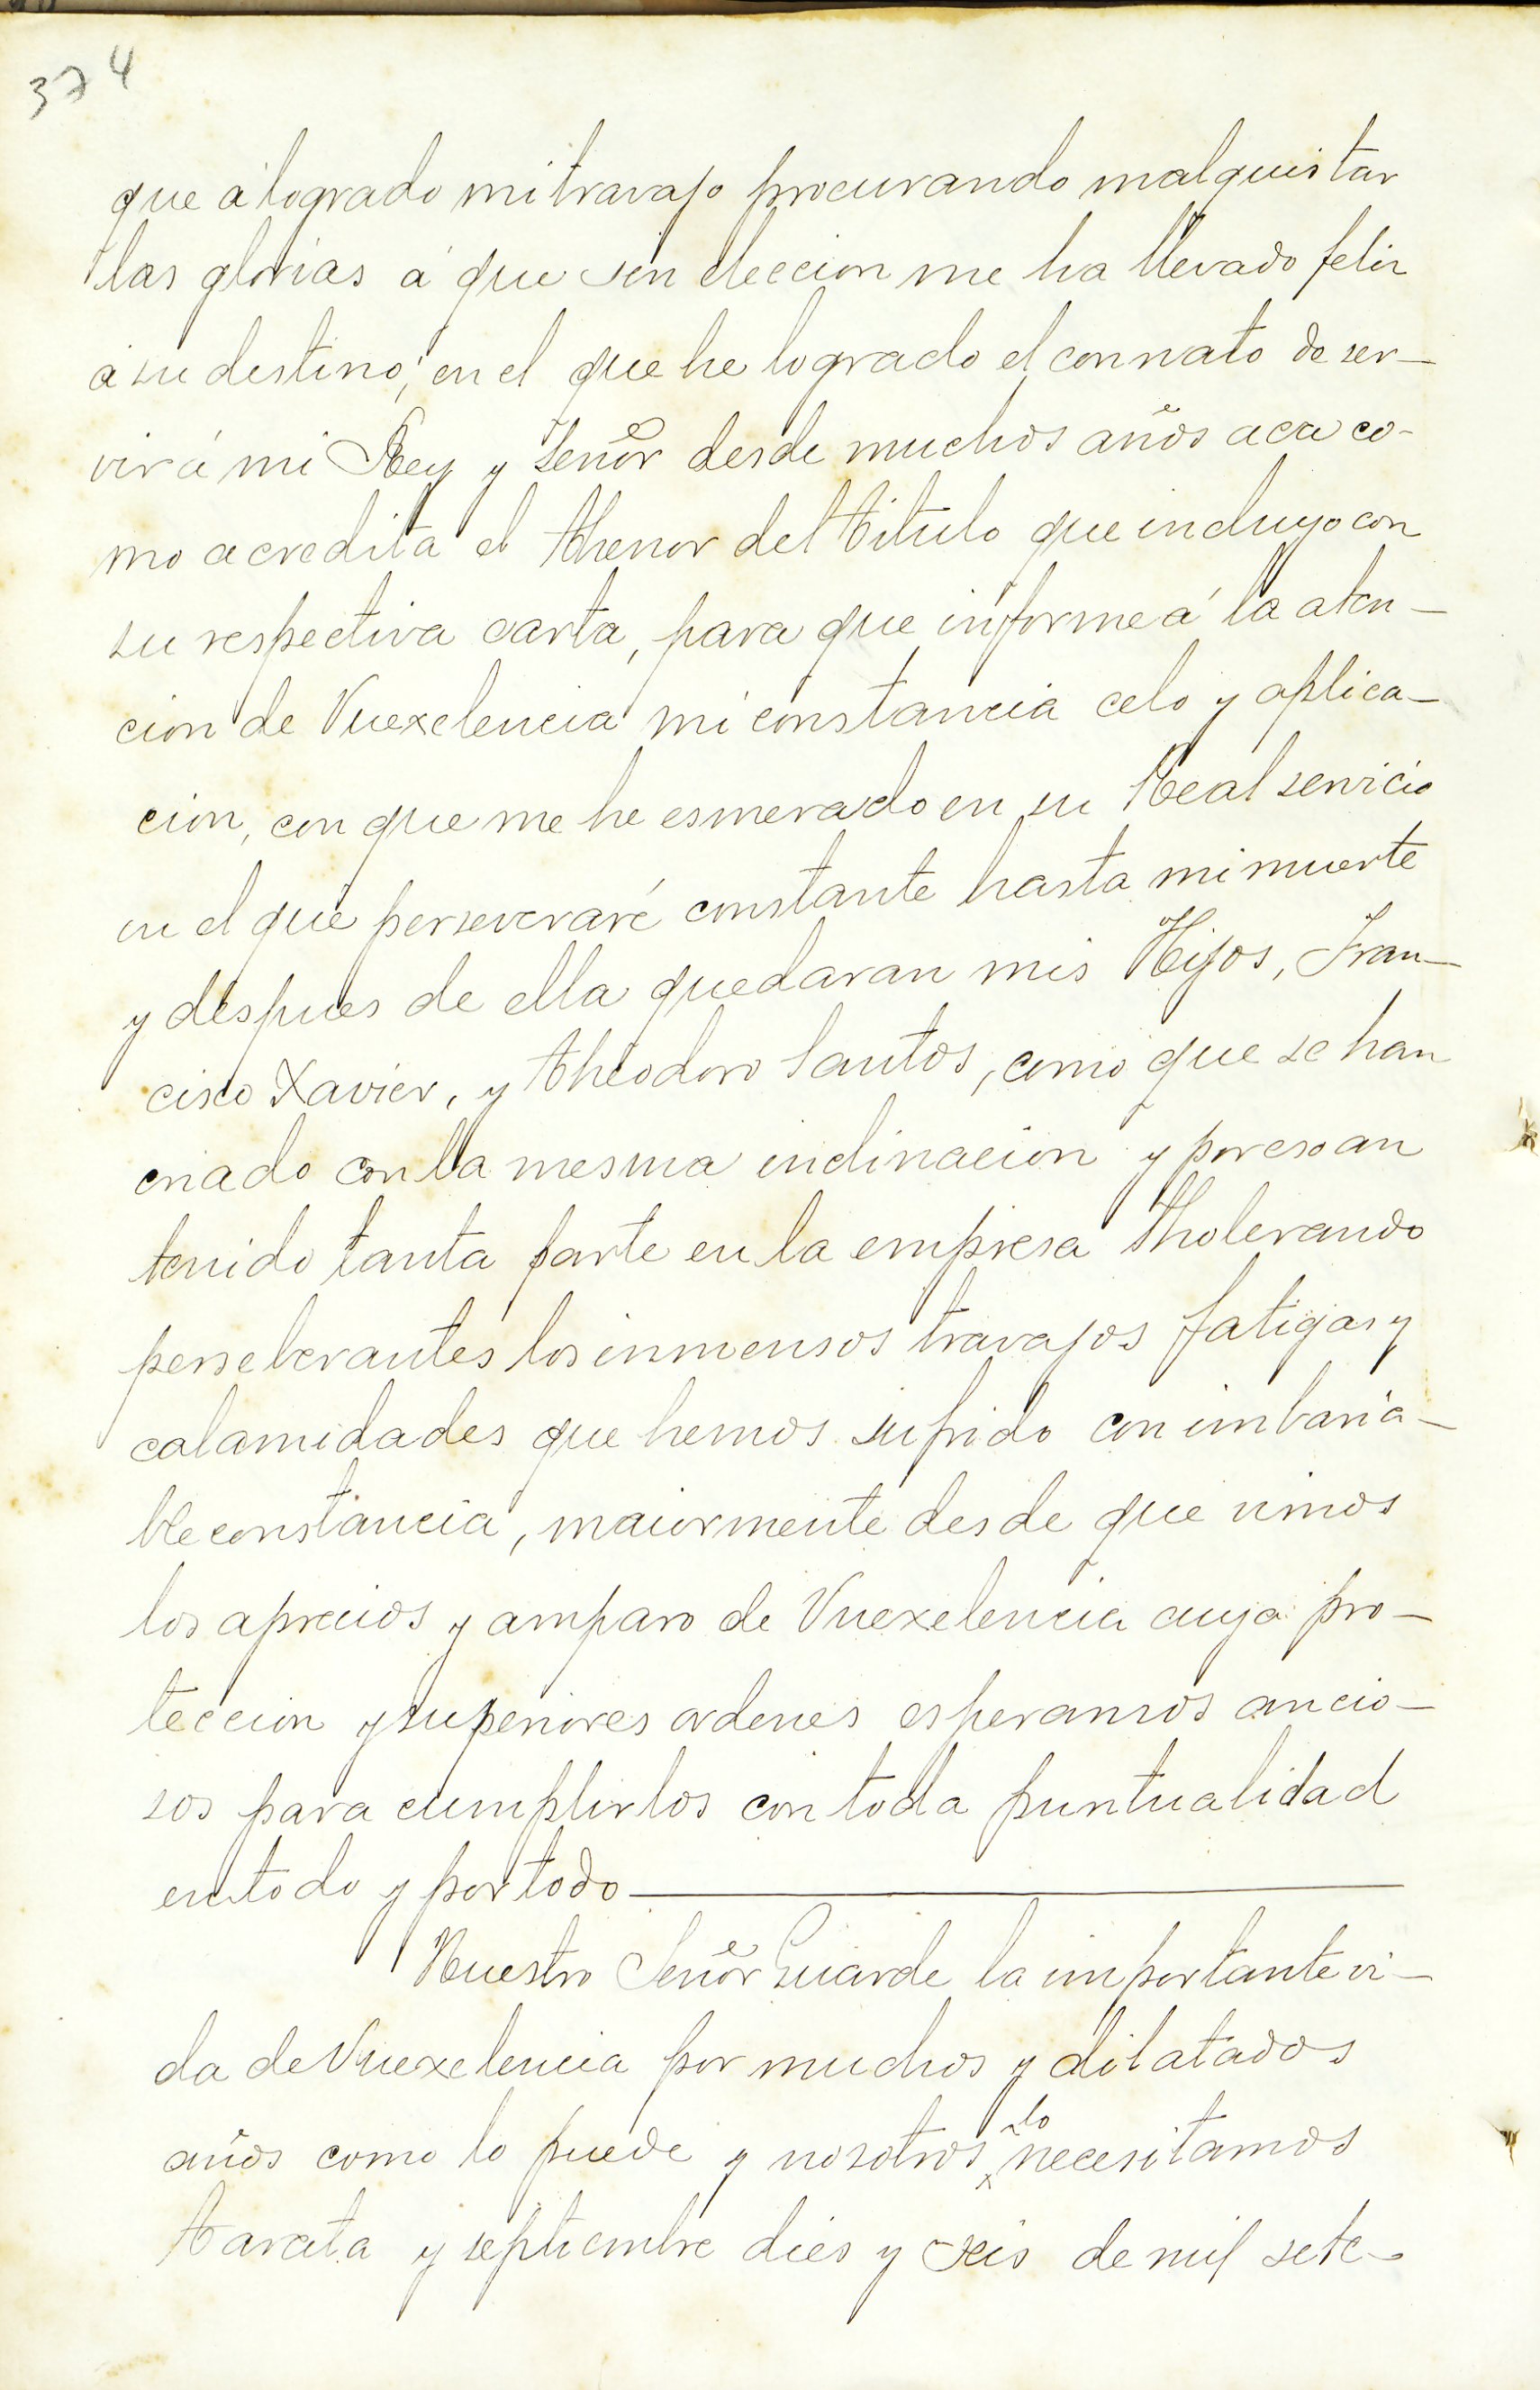 374
que á logrado mi travajo procurando malquistar
las glorias á que sin eleccion me ha llevado feliz
á su destino, en el que he logrado el connato de ser—
vir á mi Rey y Señor desde muchos años aca co-
mo acredita el thenor del titulo que incluyo con
su respectiva carta, para que informe á la aten—
cion de Vuexelencia mi constancia celo y aplica—
cion, con que me he esmerado en su Real servicio
en el que perseveraré constante hasta mi muerte
y despues de ella quedaran mis Hijos, Fran—
cisco Xavier, y Theodoro Santos, como que se han
criado con la mesma inclinacion y por eso an
tenido tanta parte en la empresa tholerando
perseberantes los inmensos travajos fatigas y
calamidades que hemos sufrido con imbaria—
ble constancia, maiormente desde que vimos
los aprecios y amparo de Vuexelencia cuya pro—
teccion y superiores ordenes esperamos ancio—
sos para cumplirlos con toda puntualidad
en todo y por todo—
Nuestro Señor Guarde la importante vi—
da de Vuexelencia por muchos y dilatados
años como lo puede y nosotros lo necesitamos
Tarata y septiembre dies y seis de mil sete-